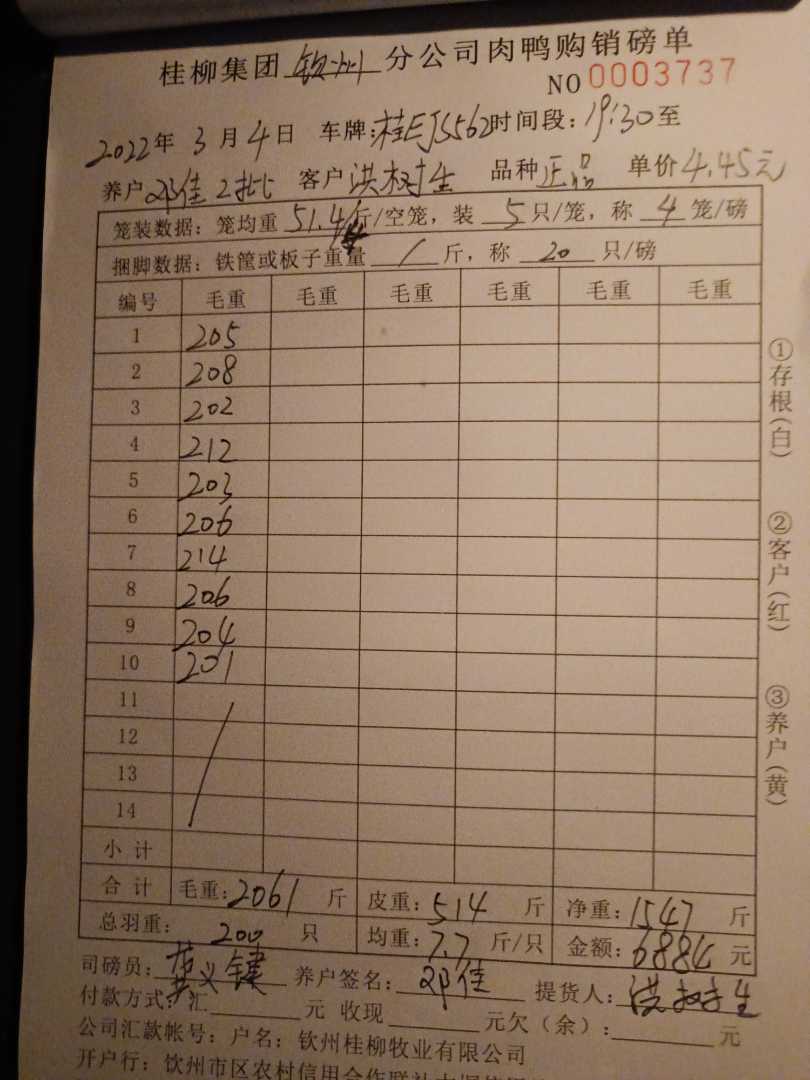 桂柳集团钦州分公司肉鸭购销磅单
NO 0003737
2022年3月4日 车牌:桂EJS562 时间段:19:30至
养户邓佳2批 客户洪树生 品种正品 单价4.45元
笼装数据: 笼均重51.4斤/空笼, 装5只/笼, 称4笼/磅
捆脚数据: 铁筐或板子重量/斤, 称20只/磅
编号 毛重 毛重 毛重 毛重 毛重 毛重
1 205
2 208
3 202
4 212
5 203
6 206
7 214
8 206
9 204
10 201
11
12
13
14
小计
合计 毛重:2061斤 皮重:514斤 净重:1547斤
总羽重: 200只 均重:7.7斤/只 金额:6884元
司磅员:黄义键 养户签名:邓佳 提货人:洪树生
付款方式:汇 元 收现 元欠(余): 元
公司汇款帐号: 户名: 钦州桂柳牧业有限公司
开户行: 钦州市区农村信用合作联社
①存根(白)
②客户(红)
③养户(黄)